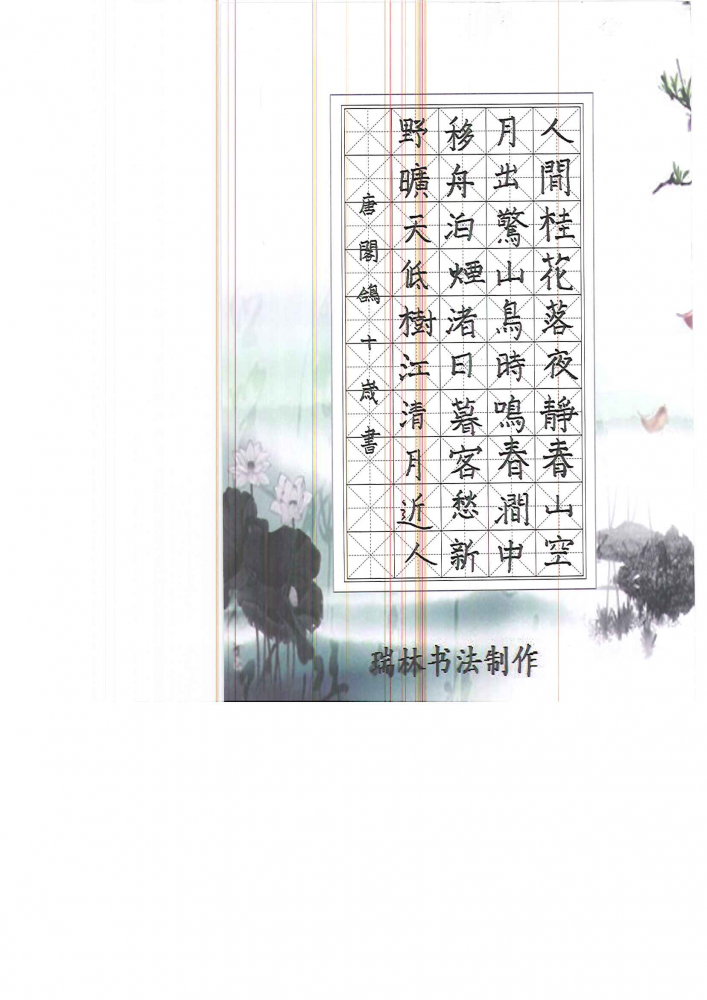 人間桂花落夜靜春山空
月出驚山鳥時鳴春澗中
移舟泊煙渚日暮客愁新
野曠天低樹江清月近人
唐閣鴿十歲書
瑞林书法制作